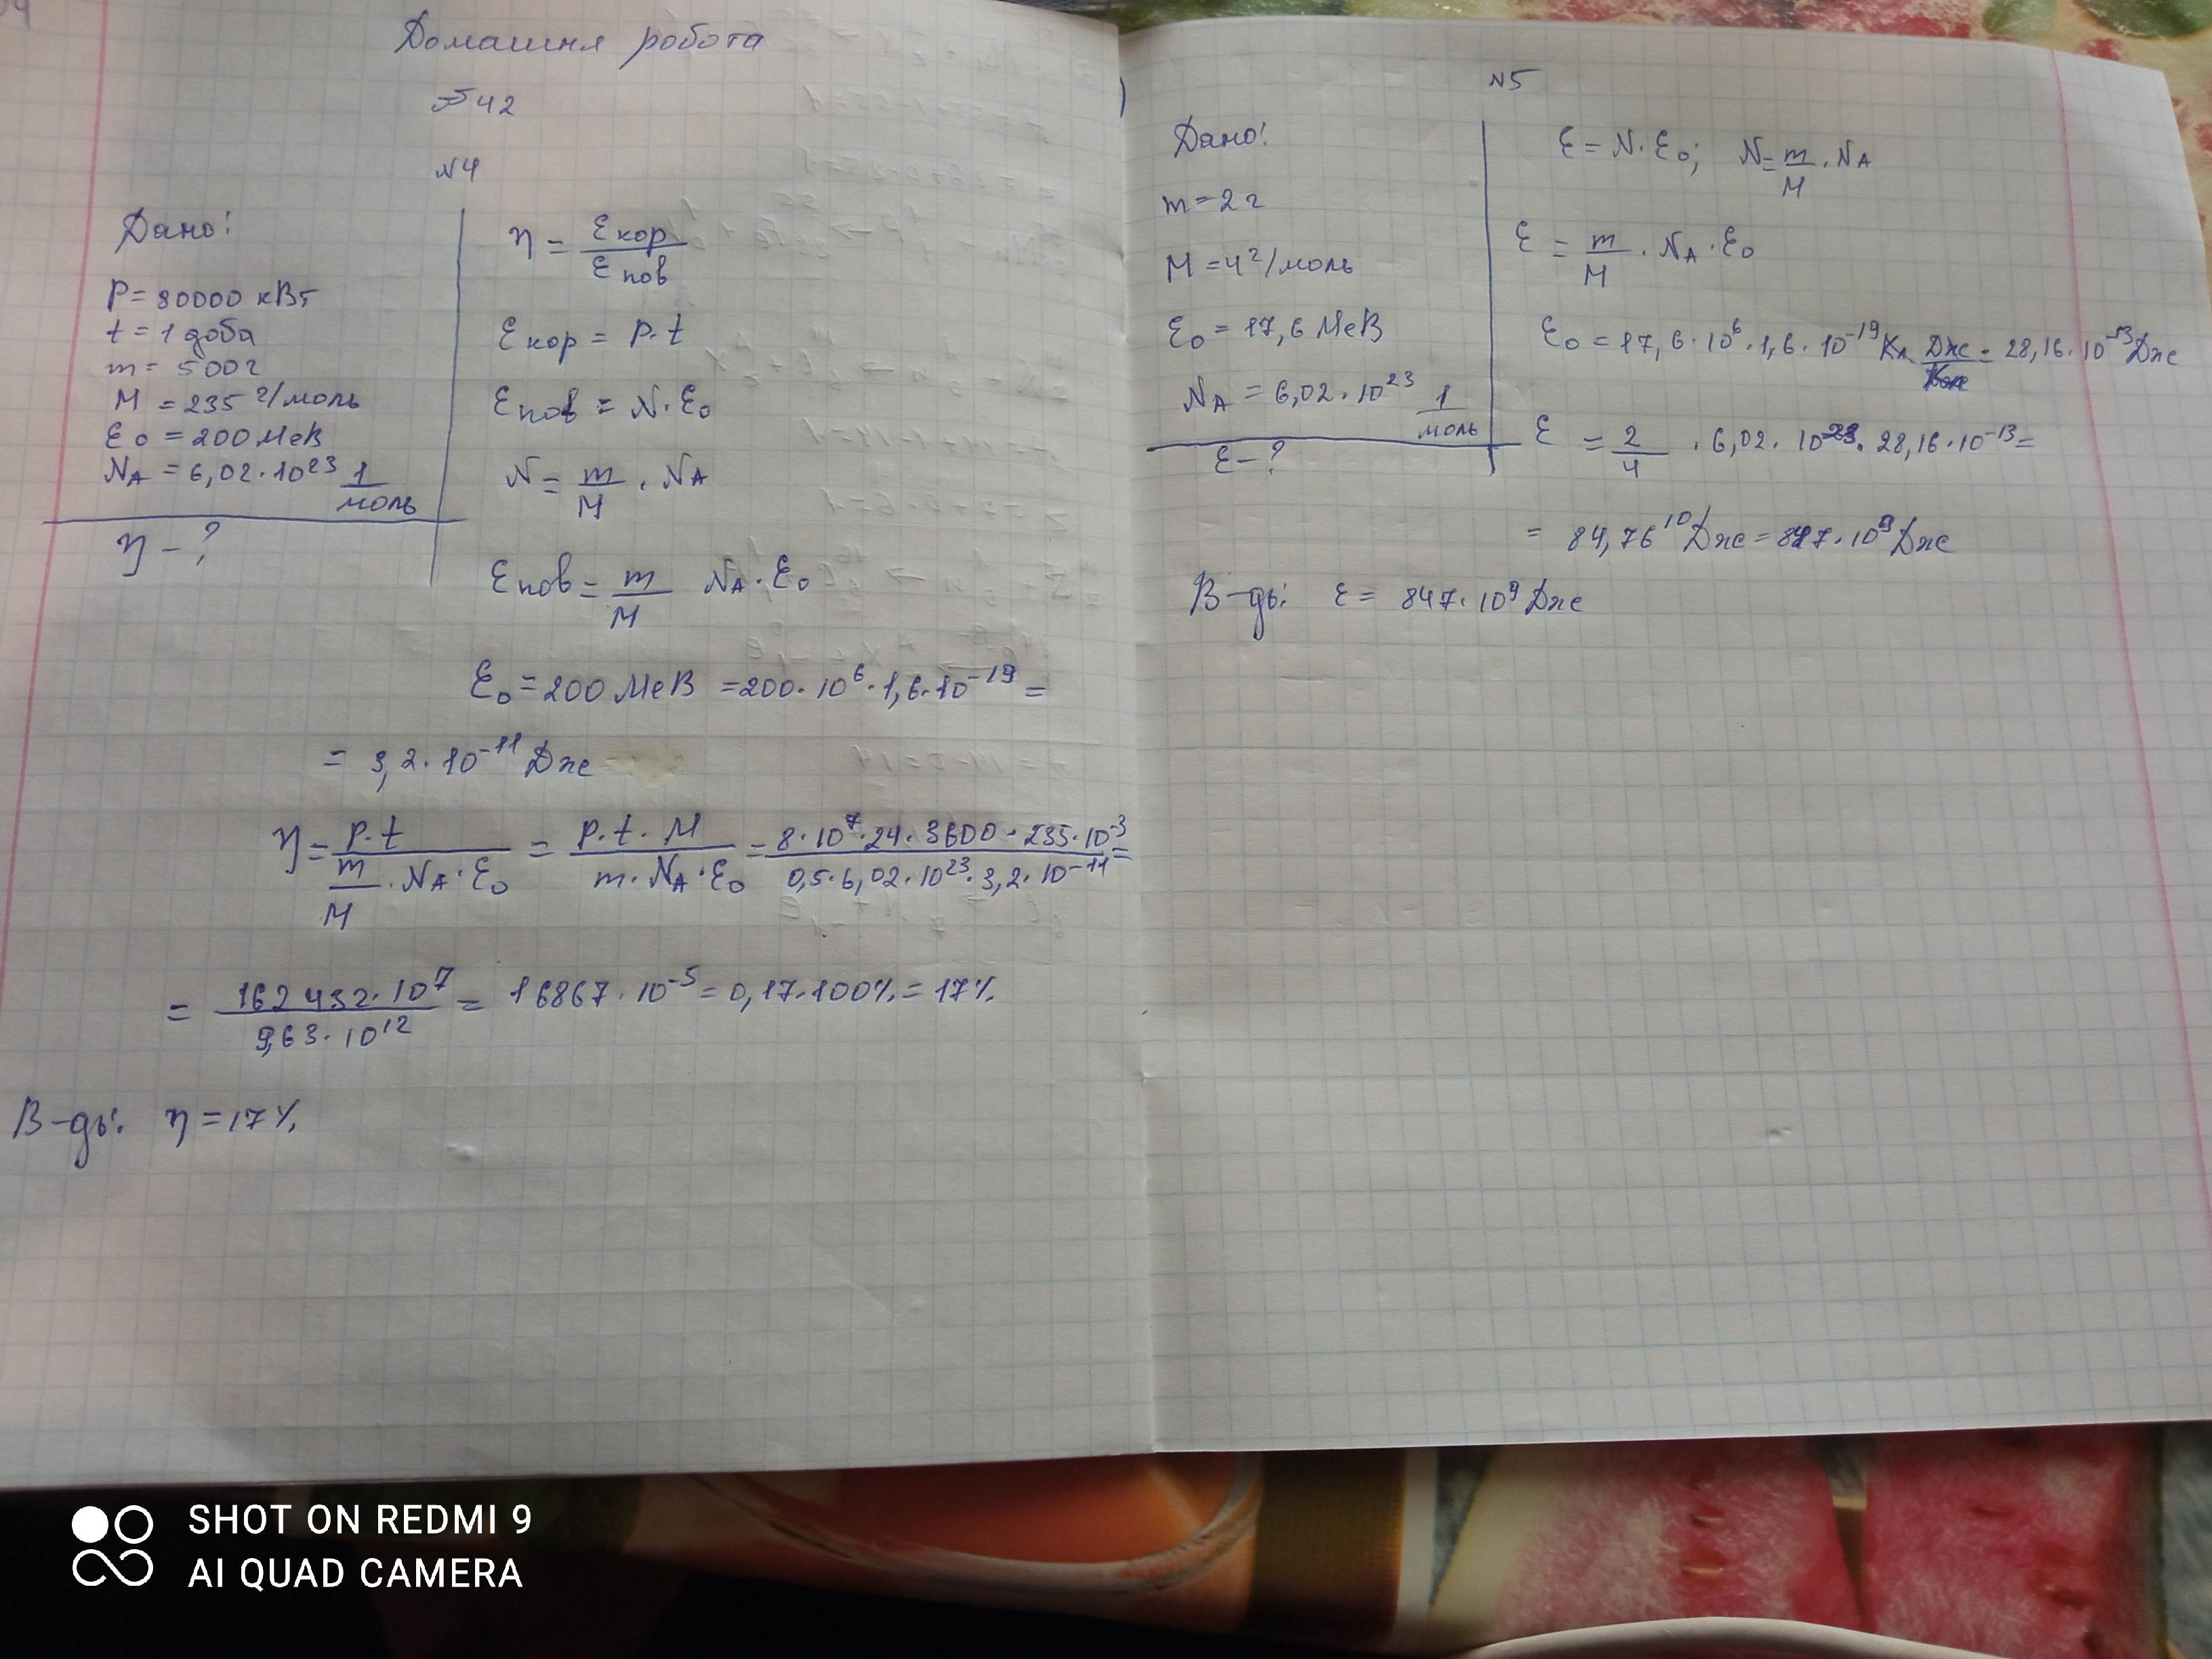 Домашня робота
§42
№4
Дано:
P = 80000 кВт
t = 1 доба
m = 500г
M = 235 г/моль
ε₀ = 200 МеВ
N_A = 6,02·10²³ 1/моль
η - ?
η = ε кор / ε пов
ε кор = P·t
ε пов = N·ε₀
N = m/M · N_A
ε пов = m/M N_A·ε₀
ε₀ = 200 МеВ = 200·10⁶·1,6·10⁻¹⁹ =
= 3,2·10⁻¹¹ Дж
η = P·t / (m/M · N_A·ε₀) = P·t·M / (m·N_A·ε₀) = 8·10⁷·24·3600·235·10⁻³ / (0,5·6,02·10²³·3,2·10⁻¹¹) =
= 162432·10⁷ / 9,63·10¹² = 16867·10⁻⁵ = 0,17·100% = 17%
В-дь: η = 17%
№5
Дано:
m = 2г
M = 4 г/моль
ε₀ = 17,6 МеВ
N_A = 6,02·10²³ 1/моль
ε - ?
ε = N·ε₀; N = m/M · N_A
ε = m/M · N_A·ε₀
ε₀ = 17,6·10⁶·1,6·10⁻¹⁹ Кл Дж/Кл = 28,16·10⁻¹³ Дж
ε = 2/4 · 6,02·10²³·28,16·10⁻¹³ =
= 84,76¹⁰ Дж = 847·10⁹ Дж
В-дь: ε = 847·10⁹ Дж
SHOT ON REDMI 9
AI QUAD CAMERA